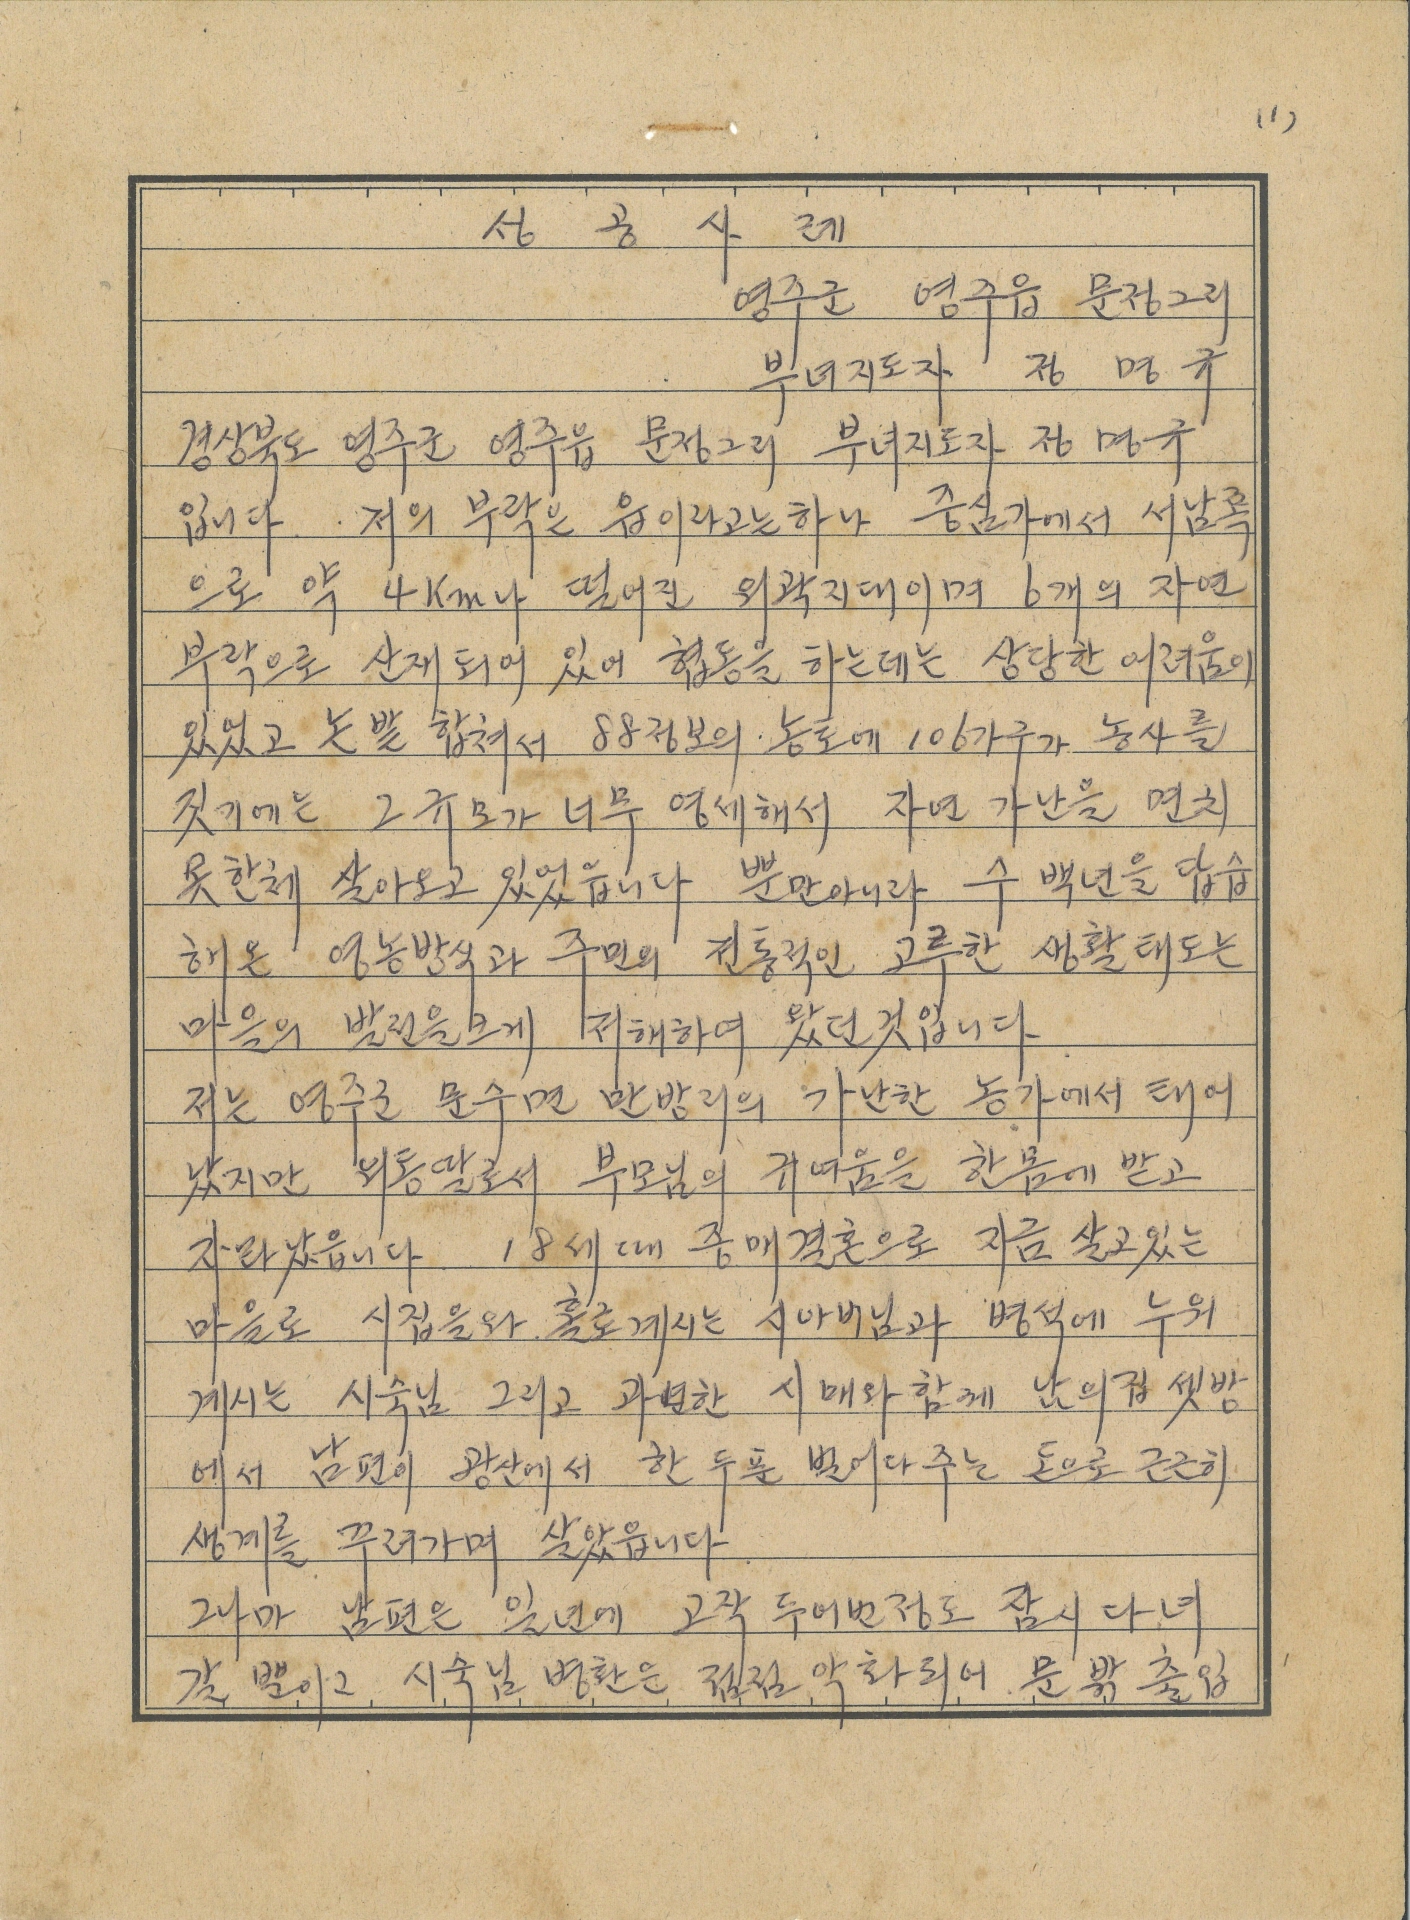 (1)
성 공 사 례
영주군 영주읍 문정2리
부녀지도자 정 명 규
경상북도 영주군 영주읍 문정2리 부녀지도자 정 명규
입니다. 저의 부락은 읍이라고는하나 중심가에서 서남쪽
으로 약 4Km나 떨어진 외곽지대이며 6개의 자연
부락으로 산재되어 있어 협동을 하는데는 상당한 어려움이
있었고 논밭 합쳐서 88정보의 농토에 106가구가 농사를
짓기에는 그 규모가 너무 영세해서 자연 가난을 면치
못한체 살아오고 있었읍니다 뿐만아니라 수 백년을 답습
해온 영농방식과 주민의 전통적인 고루한 생활태도는
마을의 발전을크게 저해하여 왔던것입니다.
저는 영주군 문수면 만방리의 가난한 농가에서 태어
났지만 외동딸로서 부모님의 귀여움을 한몸에 받고
자라났읍니다. 18세때 중매결혼으로 지금 살고있는
마을로 시집을와 홀로계시는 시아버님과 병석에 누워
계시는 시숙님 그리고 과년한 시매와함께 남의집 셋방
에서 남편이 광산에서 한두푼 벌어다주는 돈으로 근근히
생계를 꾸려가며 살았읍니다.
그나마 남편은 일년에 고작 두어번정도 잠시 다녀
갈 뿐이고 시숙님 병환은 점점 악화되어 문밖 출입